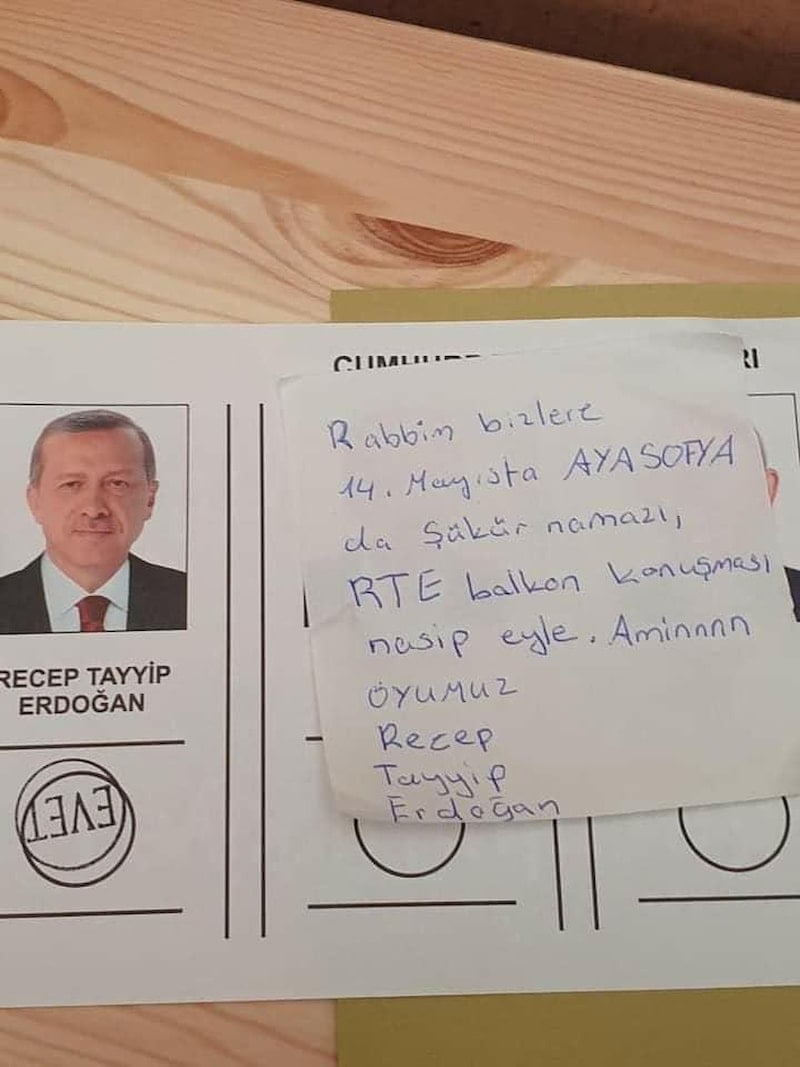 RECEP TAYYİP
ERDOĞAN
EVET
Rabbim bizlere
14. Mayısta AYASOFYA
da Şükür namazı,
RTE balkon konuşması
nasip eyle. Aminnnn
ÖYUMUZ
Recep
Tayyip
Erdoğan